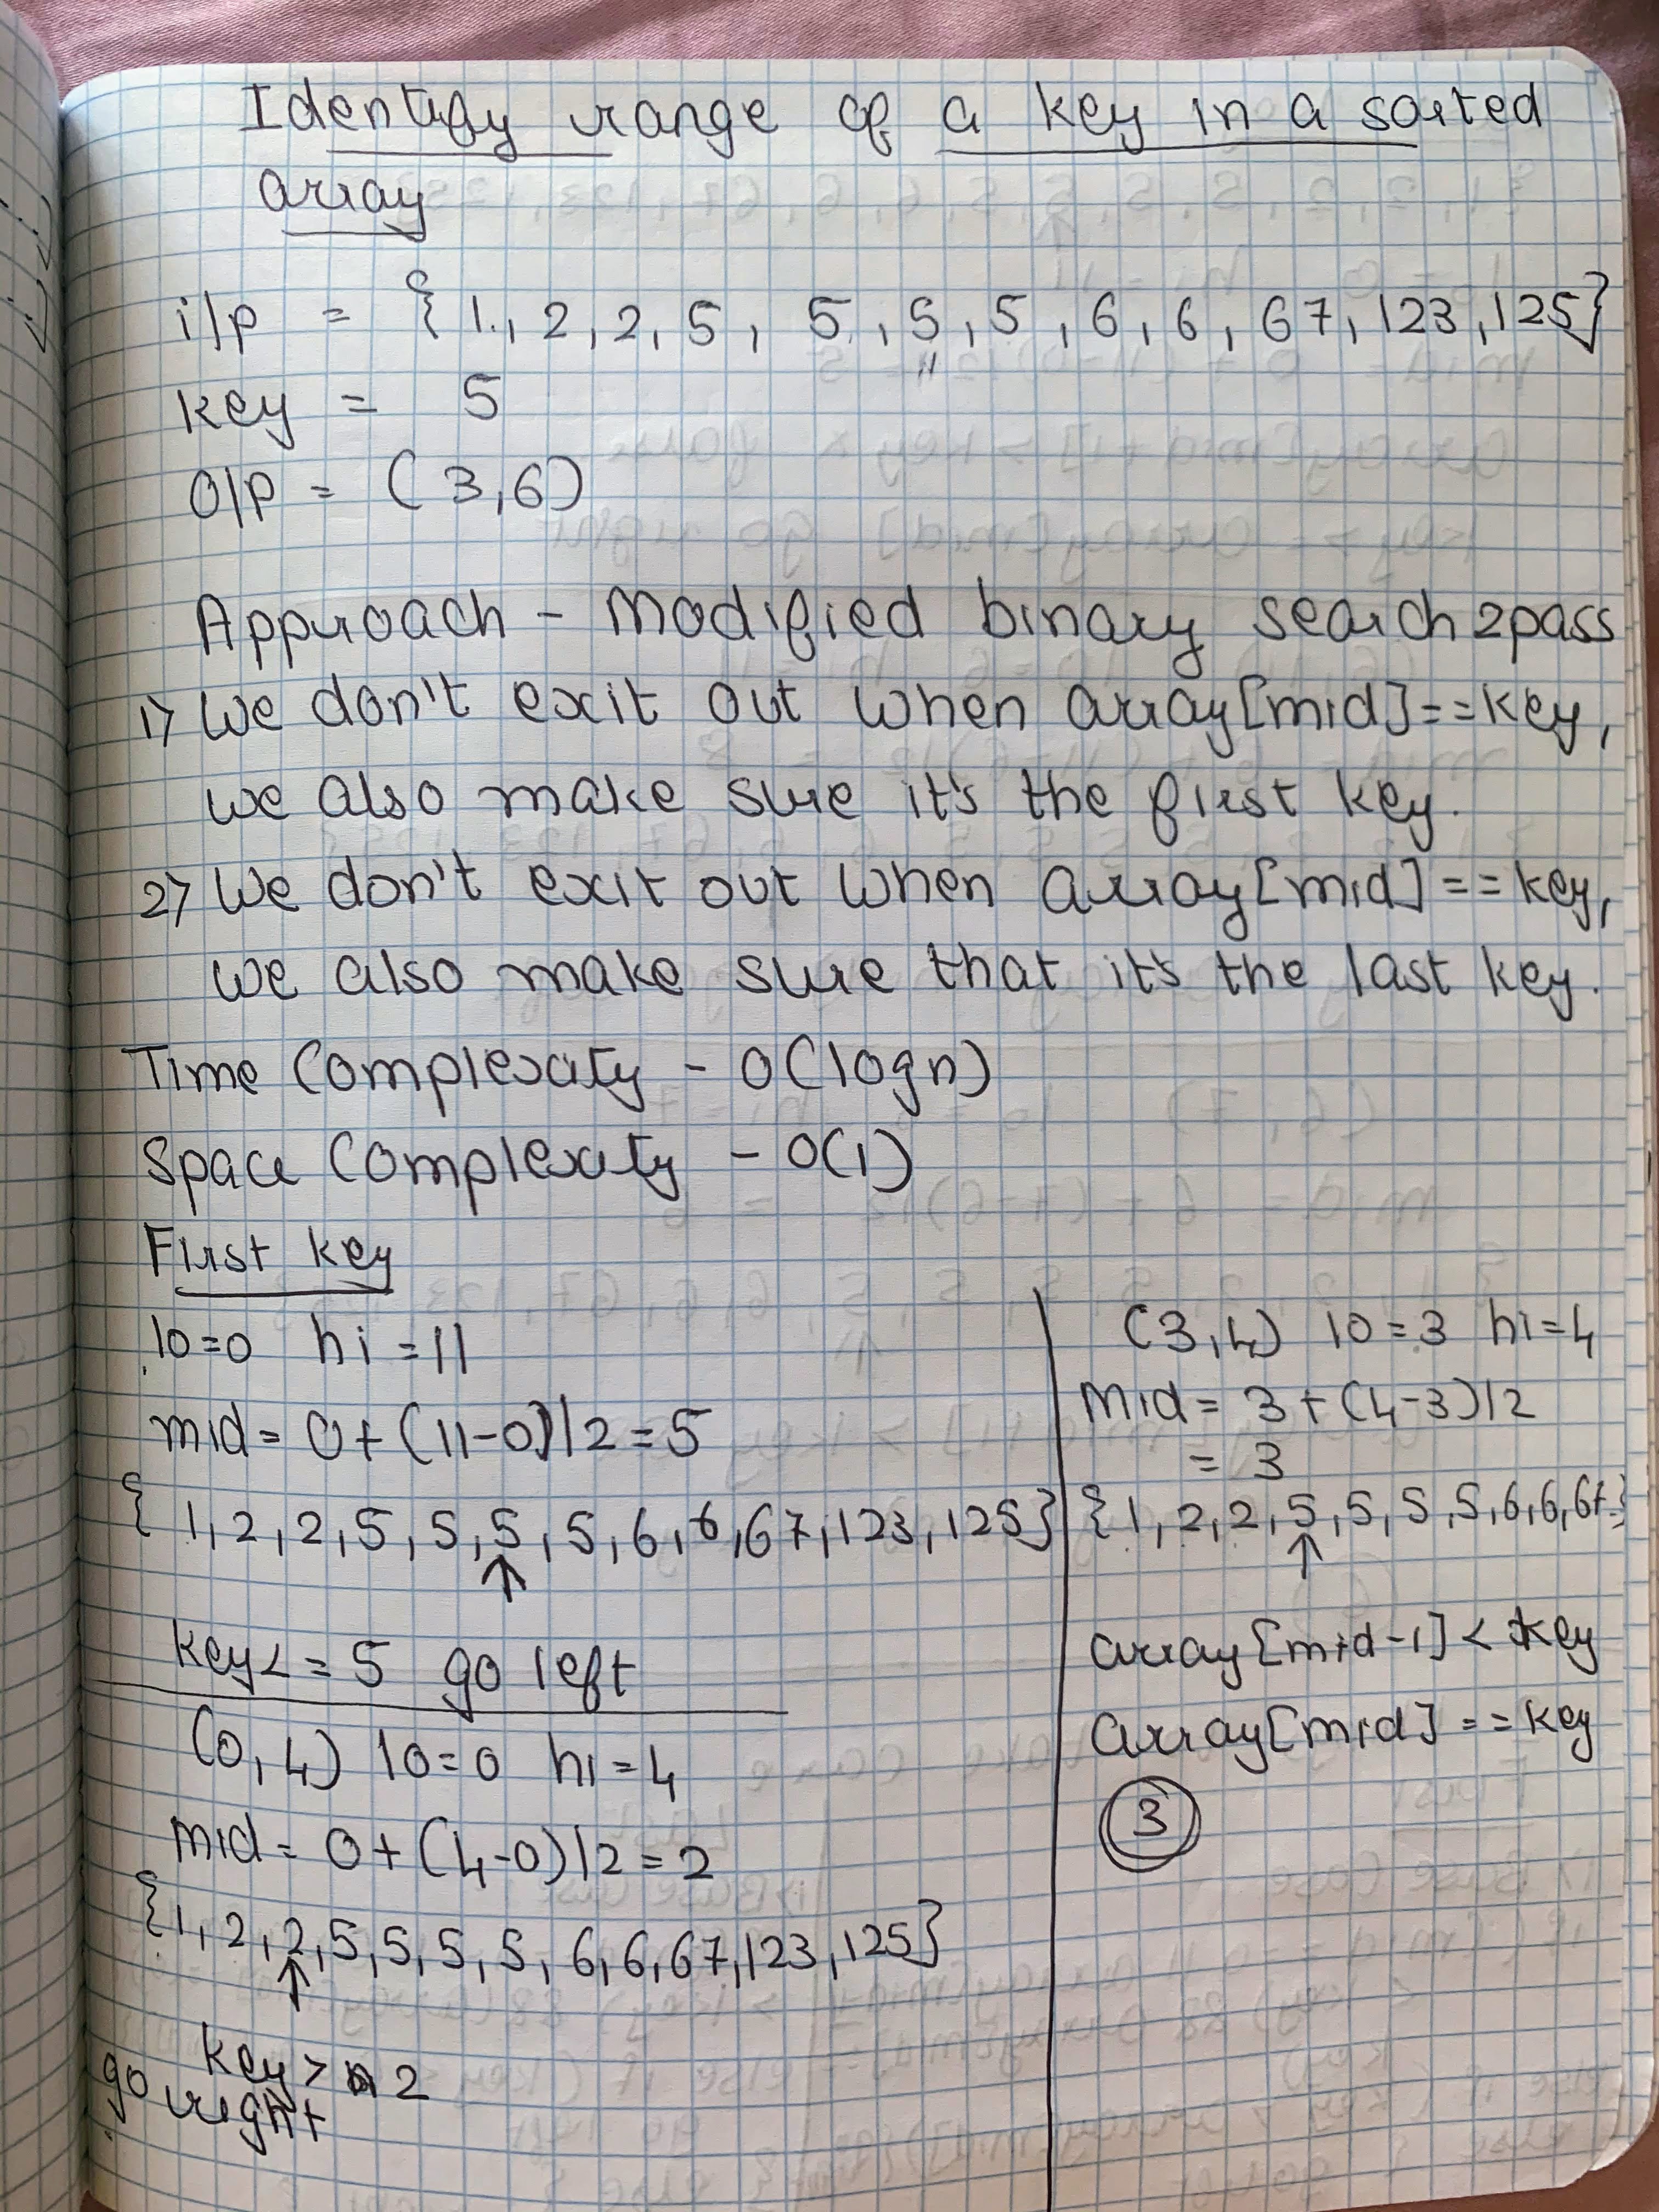 Identify range of a key in a sorted
array
i/p = {1, 2, 2, 5, 5, 5, 5, 6, 6, 67, 123, 125}
key = 5
O/P = (3,6)
Approach - Modified binary search 2pass
1) We don't exit out when array[mid]==key,
we also make sure it's the first key.
2) We don't exit out when array[mid]==key,
we also make sure that it's the last key.
Time Complexity - O(logn)
Space Complexity - O(1)
First key
lo=0 hi=11
mid= 0+(11-0)/2=5
{1,2,2,5,5,5,5,6,6,67,123,125}
↑
key<=5 go left
(0,4) lo=0 hi=4
mid= 0+(4-0)/2=2
{1,2,2,5,5,5,5,6,6,67,123,125}
↑
key> 2
go right
(3,4) lo=3 hi=4
Mid= 3+(4-3)/2
= 3
{1,2,2,5,5,5,5,6,6,67..}
↑
array[mid-1]< key
array[mid]==key
3